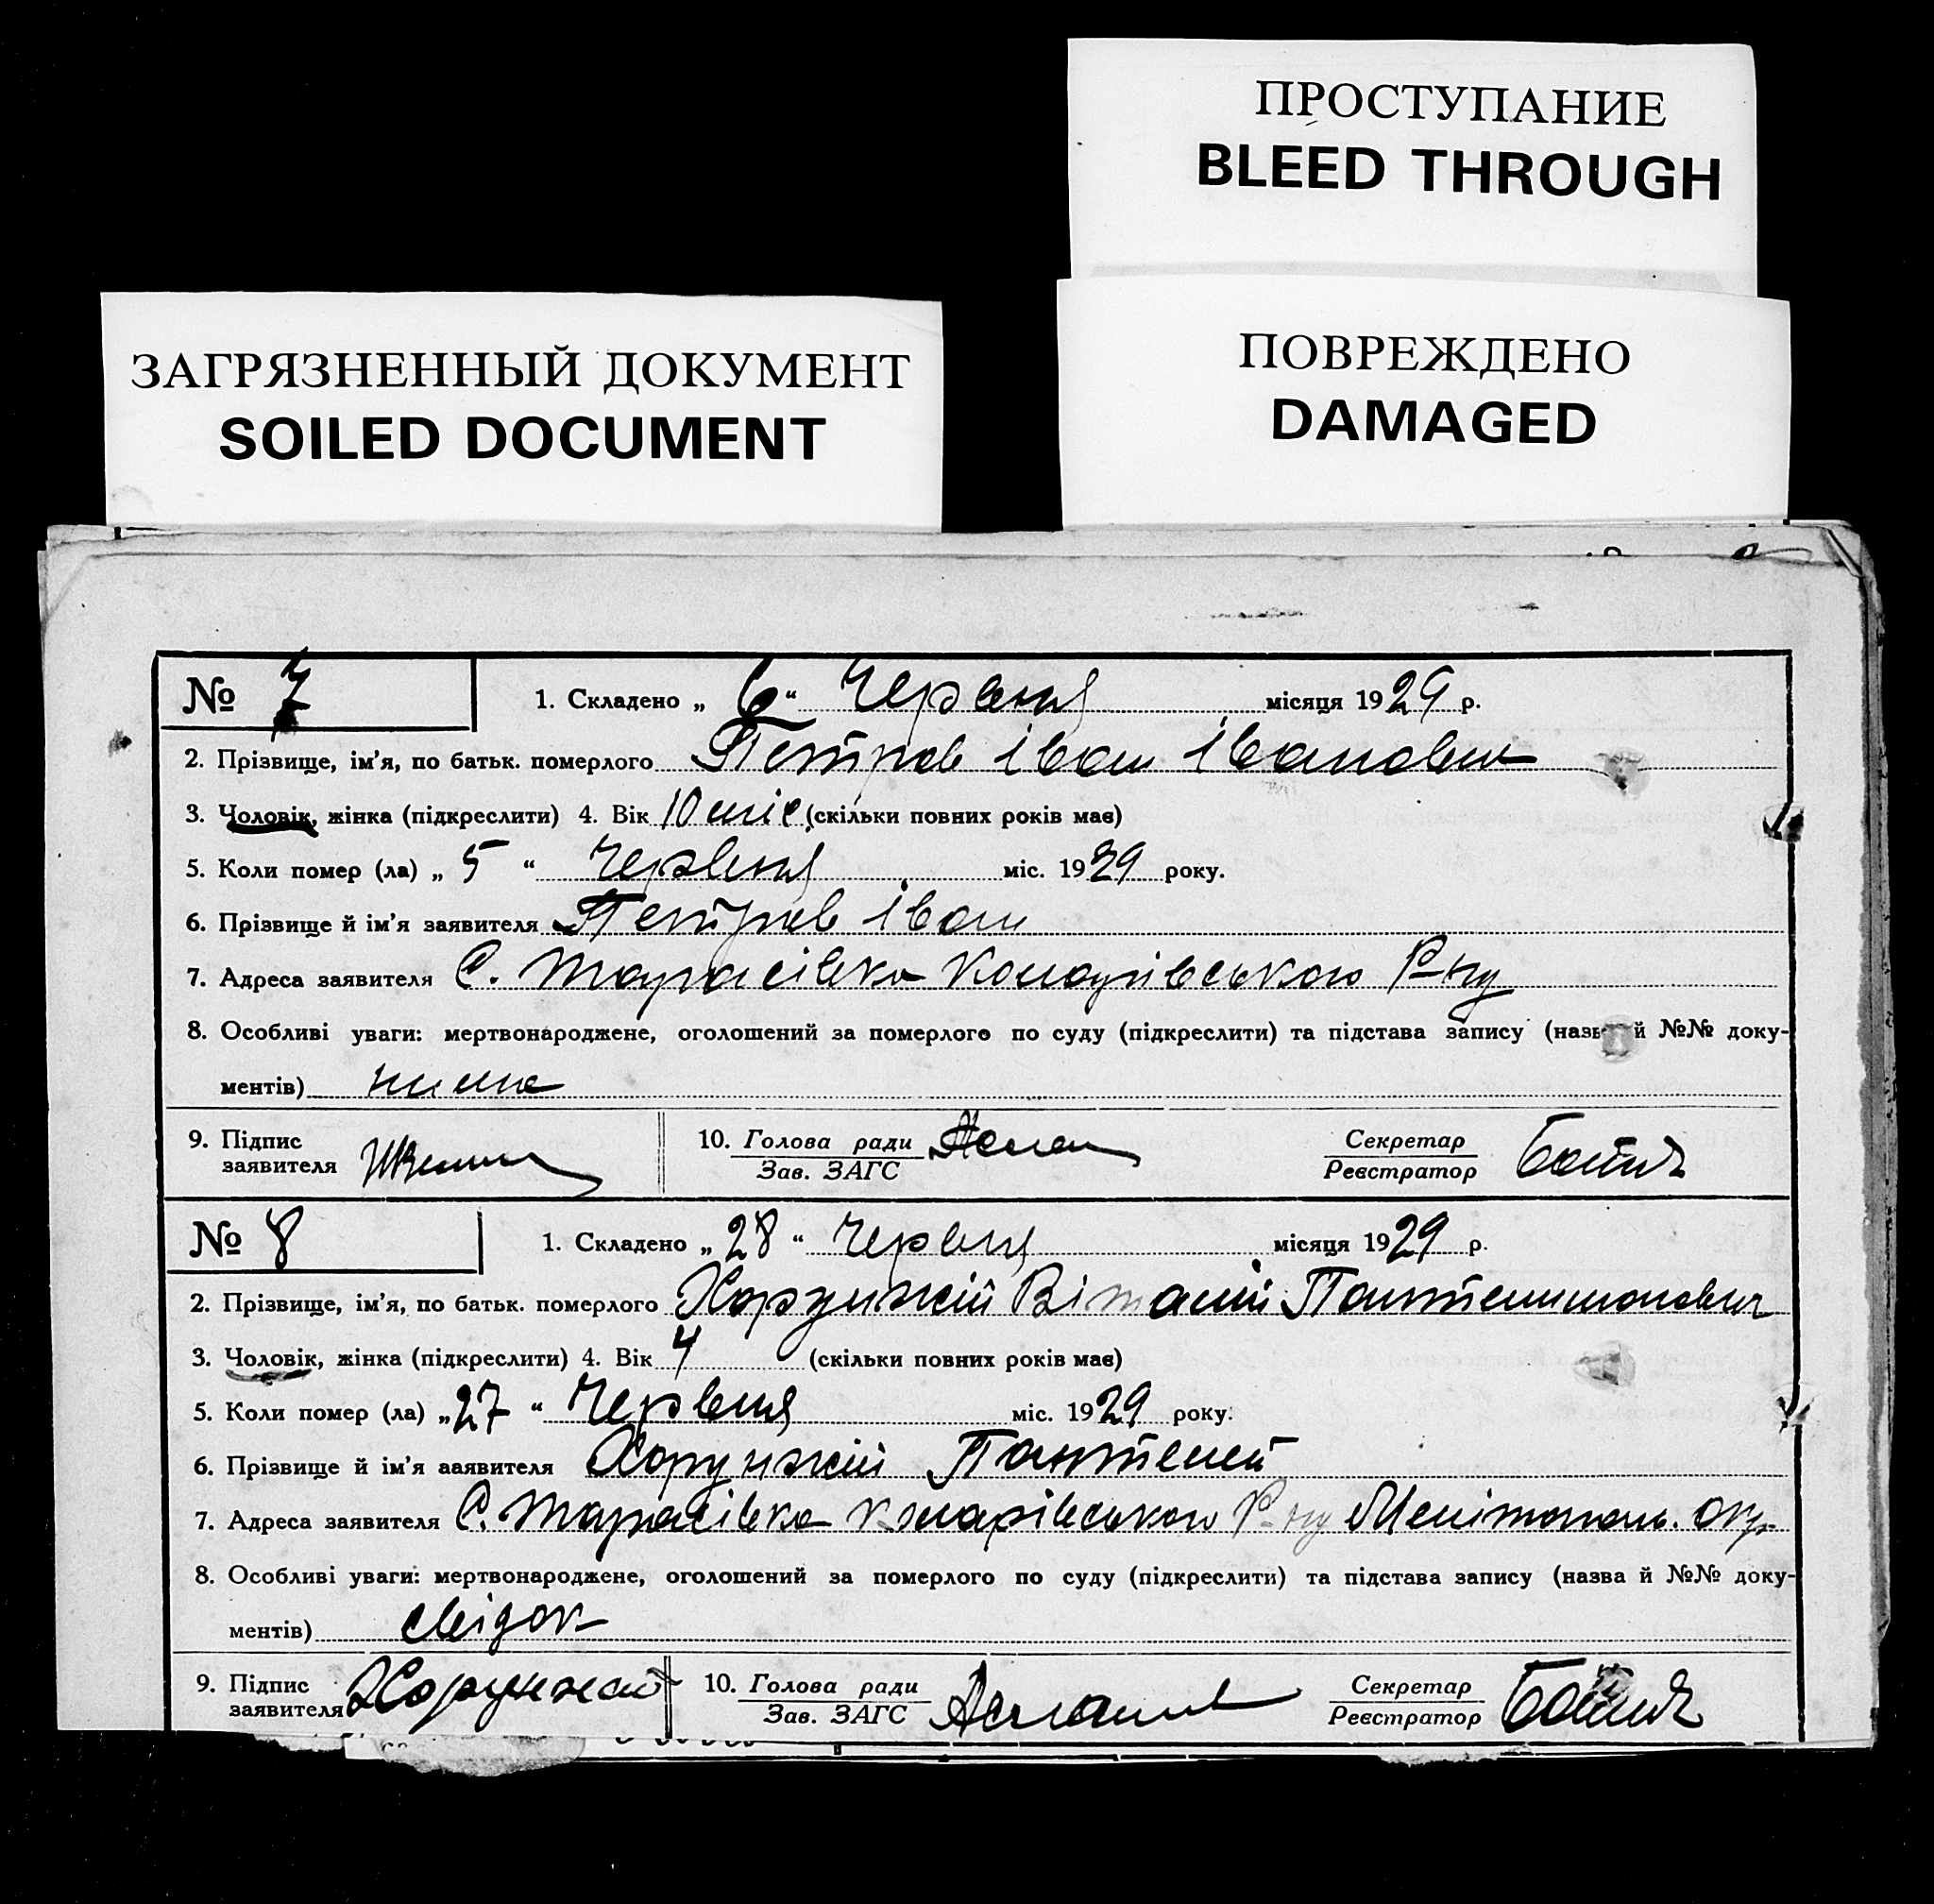 ПРОСТУПАНИЕ
BLEED THROUGH
ЗАГРЯЗНЕННЫЙ ДОКУМЕНТ
SOILED DOCUMENT
ПОВРЕЖДЕНО
DAMAGED
№ 7 1. Складено „ 6 “ Червня місяця 1929 р.
2. Прізвище, ім'я, по батьк. померлого Петров Іван Іванович
3. Чоловік, жінка (підкреслити) 4. Вік 10 міс (скільки повних років має)
5. Коли помер (ла) „ 5 “ Червня міс. 1929 року.
6. Прізвище й ім'я заявителя Петров Іван
7. Адреса заявителя С. Тарасівка Р-ну
8. Особливі уваги: мертвонароджене, оголошений за померлого по суду (підкреслити) та підстава запису (назва й №№ доку-
ментів) нима
9. Підпис заявителя 10. Голова ради Зав. ЗАГС Секретар Реєстратор
№ 8 1. Складено „ 28 “ Червня місяця 1929 р.
2. Прізвище, ім'я, по батьк. померлого Хорунжій Віталій Пантелимонович
3. Чоловік, жінка (підкреслити) 4. Вік 4 (скільки повних років має)
5. Коли помер (ла) „ 27 “ Червня міс. 1929 року.
6. Прізвище й ім'я ааявителя Хорунжій Пантелей
7. Адреса заявителя С. Тарасівка Р-ну Мелітополь. окр.
8. Особливі уваги: мертвонароджене, оголошений за померлого по суду (підкреслити) та підстава запису (назва й №№ доку-
ментів) свідок
9. Підпис заявителя Хорунжий 10. Голова ради Зав. ЗАГС Секретар Реєстратор